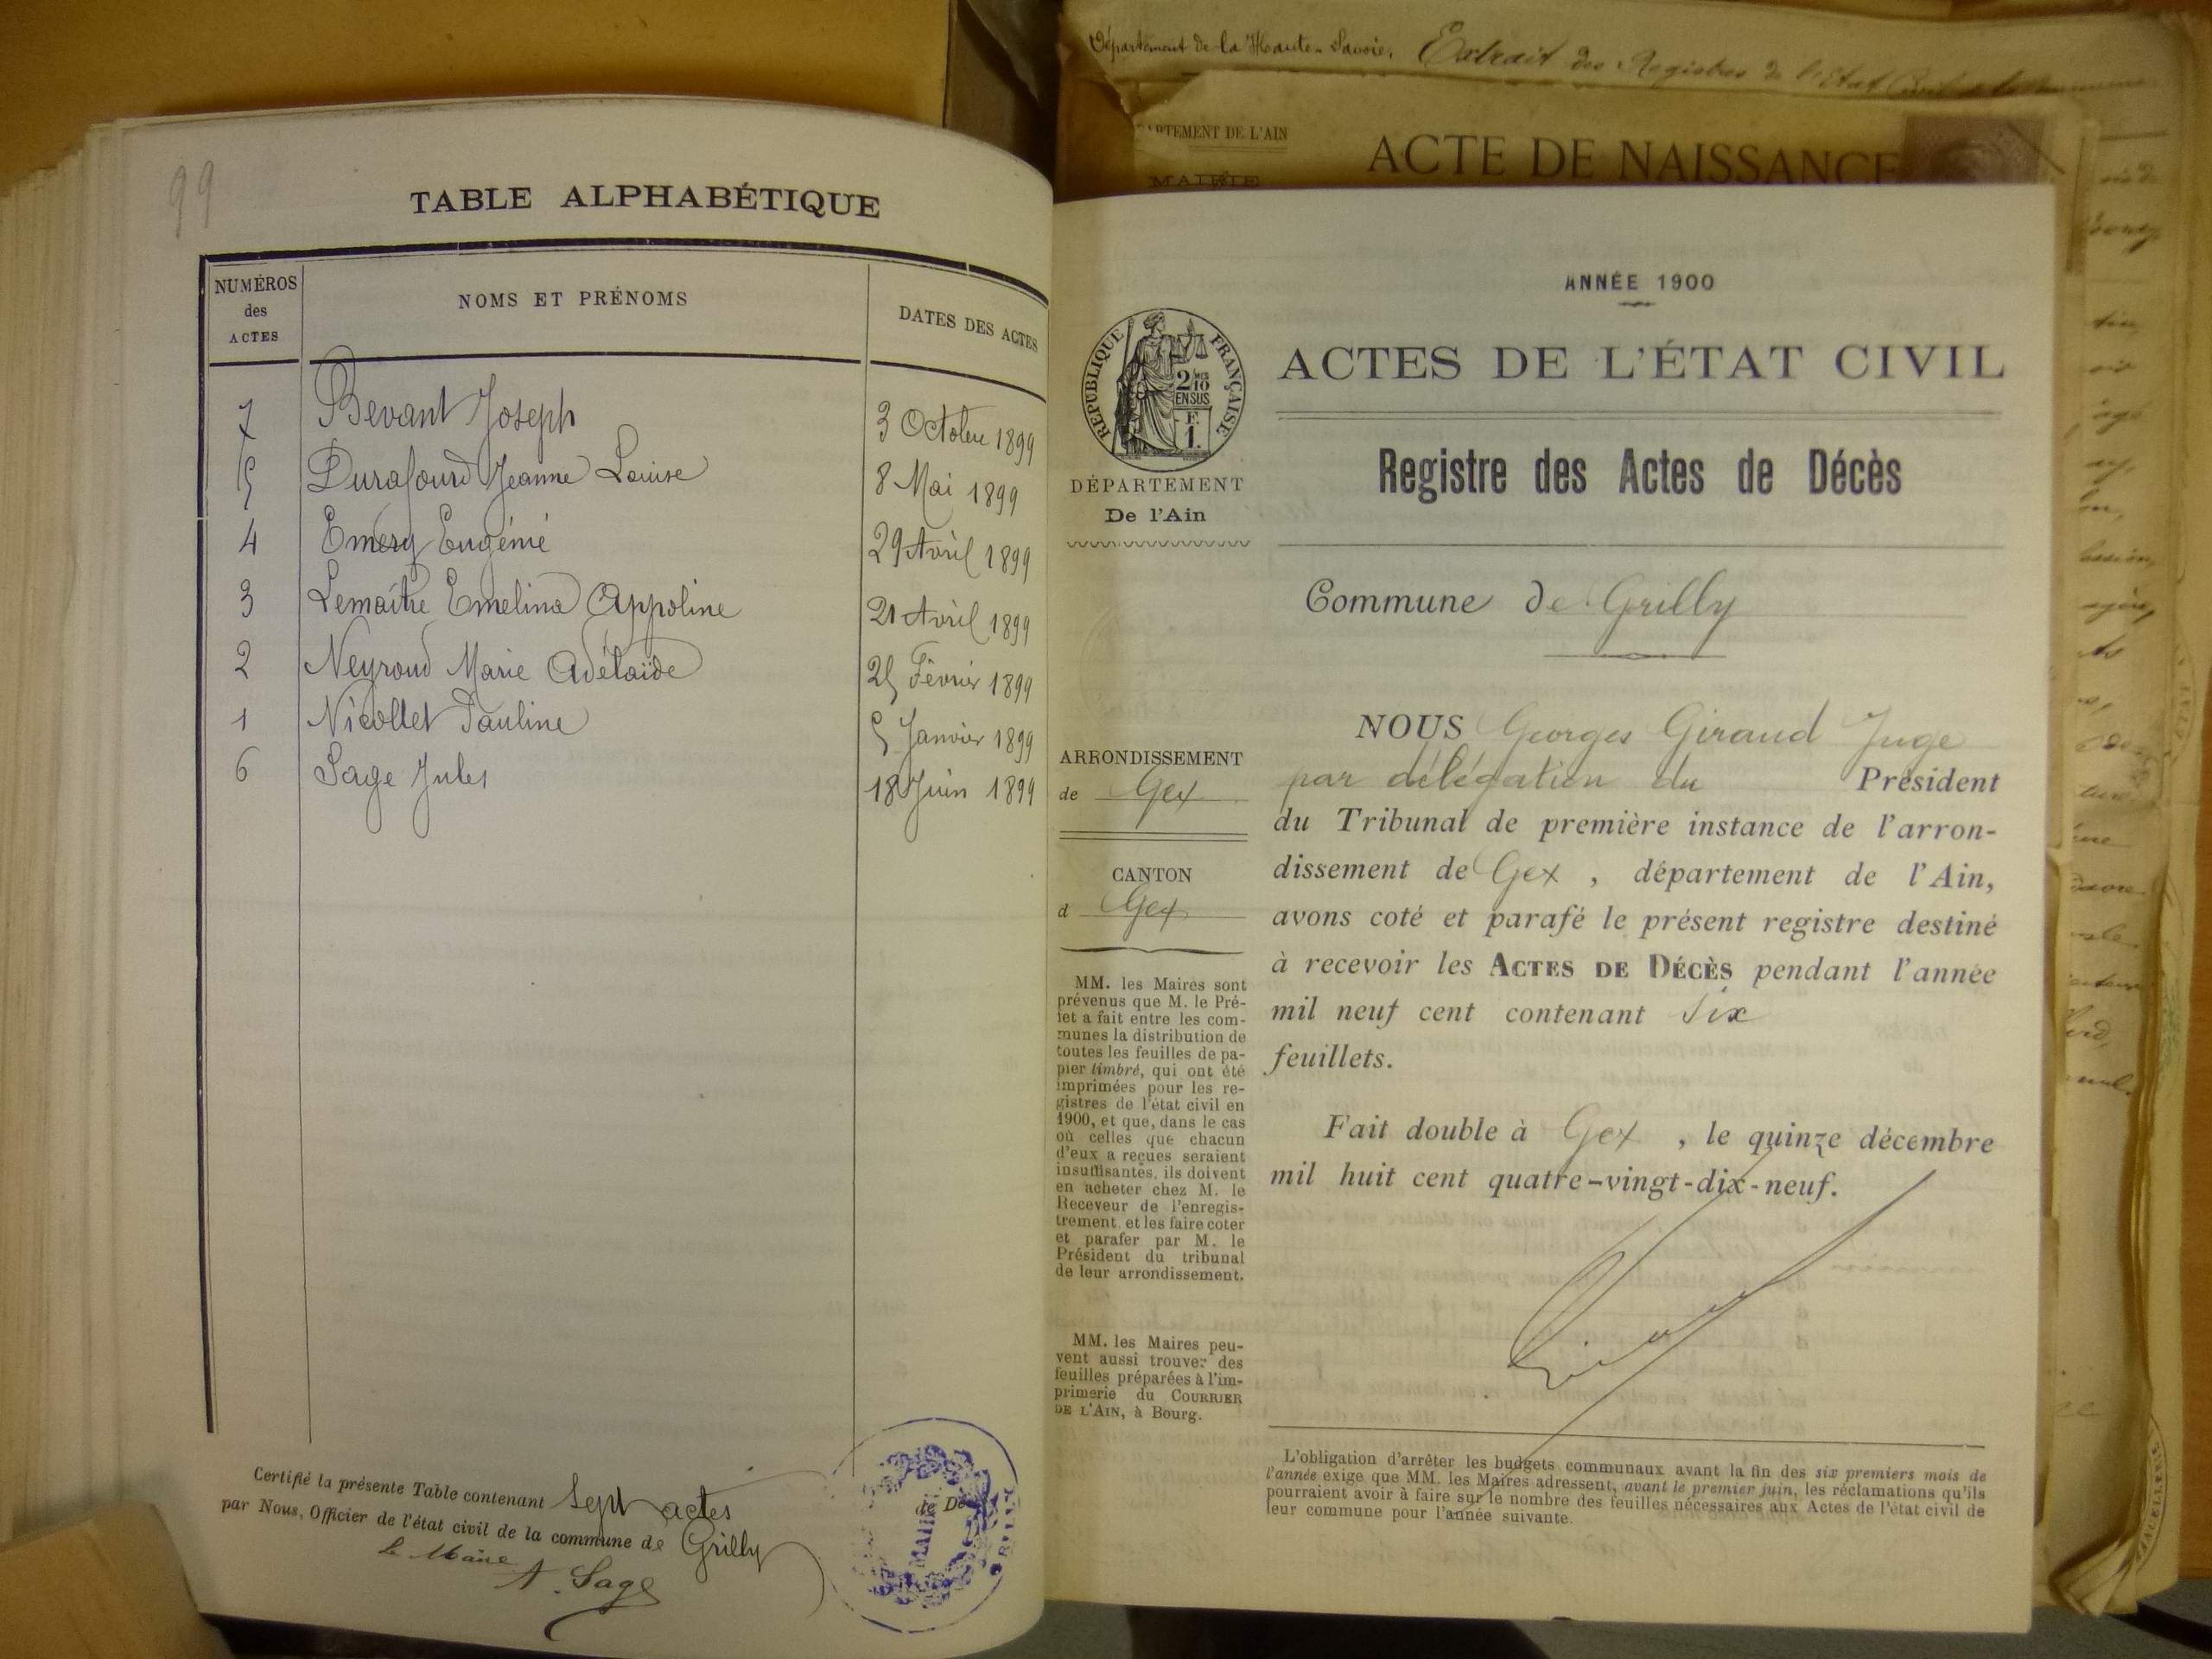 99
TABLE ALPHABÉTIQUE
NUMÉROS des ACTES
NOMS ET PRÉNOMS
DATES DES ACTES
7 Bevant Joseph 3 Octobre 1899
5 Durafourd Jeanne Louise 8 Mai 1899
4 Emery Eugénie 29 Avril 1899
3 Lemaitre Emelina Appoline 21 Avril 1899
2 Neyroud Marie Adélaïde 25 Février 1899
1 Nicollet Pauline 5 Janvier 1899
6 Sage Jules 18 Juin 1899
Certifié la présente Table contenant Sept actes
par Nous, Officier de l'état civil de la commune de Grilly
le Maire
A. Sage
MAIRIE
Département de la Haute-Savoie. Extrait des Registres de l'Etat Civil de la
ARTEMENT DE L'AIN
ACTE DE NAISSANCE
MAIRIE
ANNÉE 1900
RÉPUBLIQUE FRANÇAISE
2/10
EN SUS
F.
1.
ACTES DE L'ÉTAT CIVIL
Registre des Actes de Décès
DÉPARTEMENT
De l'Ain
Commune de Grilly
ARRONDISSEMENT
de Gex
CANTON
d Gex
MM. les Maires sont
prévenus que M. le Pré-
fet a fait entre les com-
munes la distribution de
toutes les feuilles de pa-
pier timbré, qui ont été
imprimées pour les re-
gistres de l'état civil en
1900, et que, dans le cas
où celles que chacun
d'eux a reçues seraient
insuffisantes, ils doivent
en acheter chez M. le
Receveur de l'enregis-
trement, et les faire coter
et parafer par M. le
Président du tribunal
de leur arrondissement.
MM. les Maires peu-
vent aussi trouver des
feuilles préparées à l'im-
primerie du COURRIER
DE L'AIN, à Bourg.
NOUS Georges Giraud Juge
par délégation du Président
du Tribunal de première instance de l'arron-
dissement de Gex , département de l'Ain,
avons coté et parafé le présent registre destiné
à recevoir les ACTES DE DÉCÈS pendant l'année
mil neuf cent contenant six
feuillets.
Fait double à Gex , le quinze décembre
mil huit cent quatre-vingt-dix-neuf.
L'obligation d'arrêter les budgets communaux avant la fin des six premiers mois de
l'année exige que MM. les Maires adressent, avant le premier juin, les réclamations qu'ils
pourraient avoir à faire sur le nombre des feuilles nécessaires aux Actes de l'état civil de
leur commune pour l'année suivante.